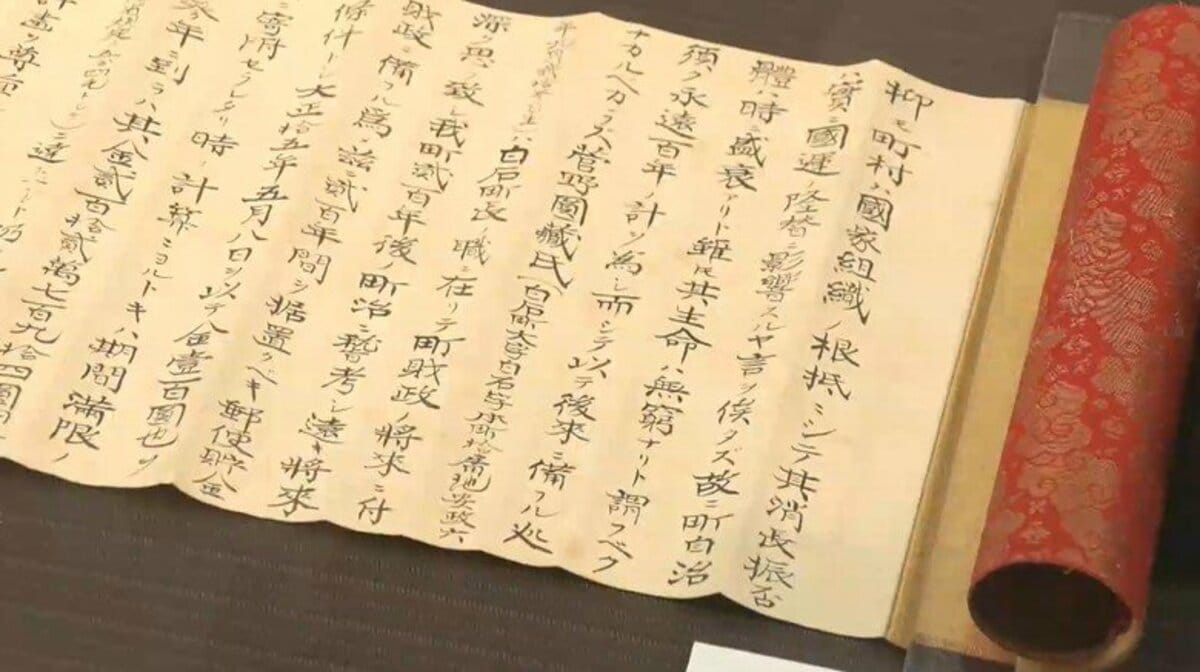 抑モ町村ハ國家組織ノ根抵ニシテ其消長振否
ハ實ニ國運ノ隆替ニ影響スルヤ言ヲ俟タズ故ニ町自治
體ハ時ニ盛衰アリト雖モ其生命ハ無窮ナリト謂フベク
須ク永遠百年ノ計ヲ為シ而シテ以テ後來ニ備フル処
ナカルベカラズ菅野圓藏氏白石町大字白石字本町拾番地安政六
ハ白石町長ノ職ニ在リテ町財政ノ將來ニ付
深ク思ヲ致シ我町貳百年後ノ町治ニ稽考シ遠キ將來
財政ニ備フル為茲ニ貳百年間ヲ据置クベキ郵便貯金
條件トシ大正拾五年五月八日ヲ以テ金壹百圓也ヲ
寄附セラレタリ時ノ計算ニヨルトキハ期間滿限ノ
年ニ到ラハ其金貳百拾貳萬七百九拾四圓